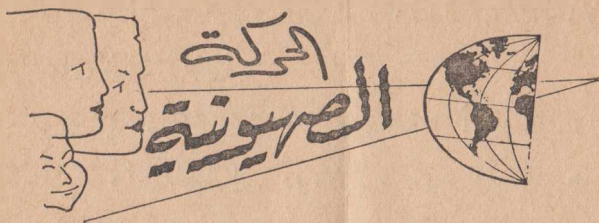 الحركة
الصهيونية